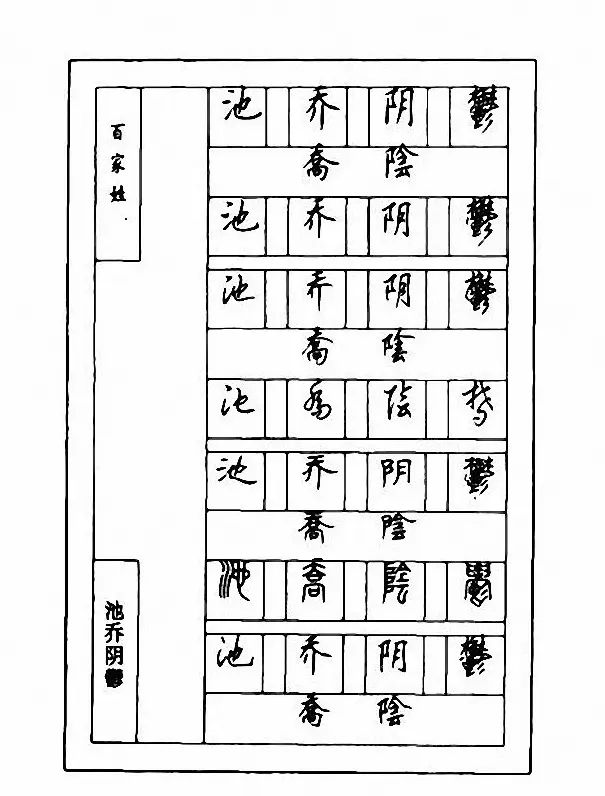 百家姓
池 乔 阴 鬱
喬 陰
池 乔 阴 鬱
池 乔 阴 鬱
喬 陰
池 喬 陰
池 乔 阴 鬱
喬 陰
池 喬 陰 鬱
池 乔 阴 鬱
喬 陰
池乔阴鬱